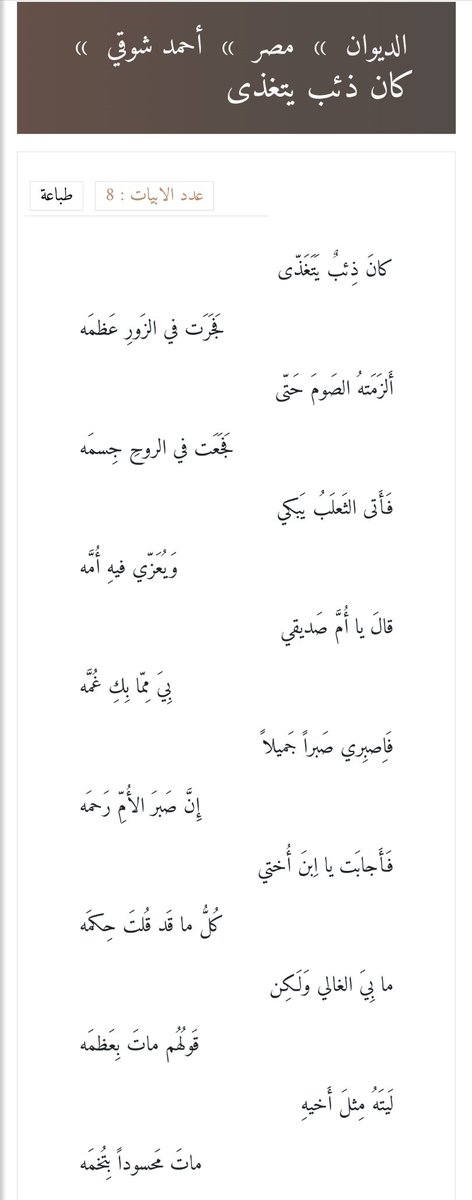 الديوان » مصر » أحمد شوقي »
كان ذئب يتغذى
عدد الابيات : 8
طباعة
كانَ ذِئبٌ يَتَغَذّى
فَجَرَت في الزَورِ عَظمَه
أَلزَمَتهُ الصَومَ حَتّى
فَجَعَت في الروحِ جِسمَه
فَأَتى الثَعلَبُ يَبكي
وَيُعَزّي فيهِ أُمَّه
قالَ يا أُمَّ صَديقي
بِيَ مِمّا بِكِ غُمَّه
فَاِصبِري صَبراً جَميلاً
إِنَّ صَبرَ الأُمِّ رَحمَه
فَأَجابَت يا اِبنَ أُختي
كُلُّ ما قَد قُلتَ حِكمَه
ما بِيَ الغالي وَلَكِن
قَولُهُم ماتَ بِعَظمَه
لَيتَهُ مِثلَ أَخيهِ
ماتَ مَحسوداً بِتُخمَه